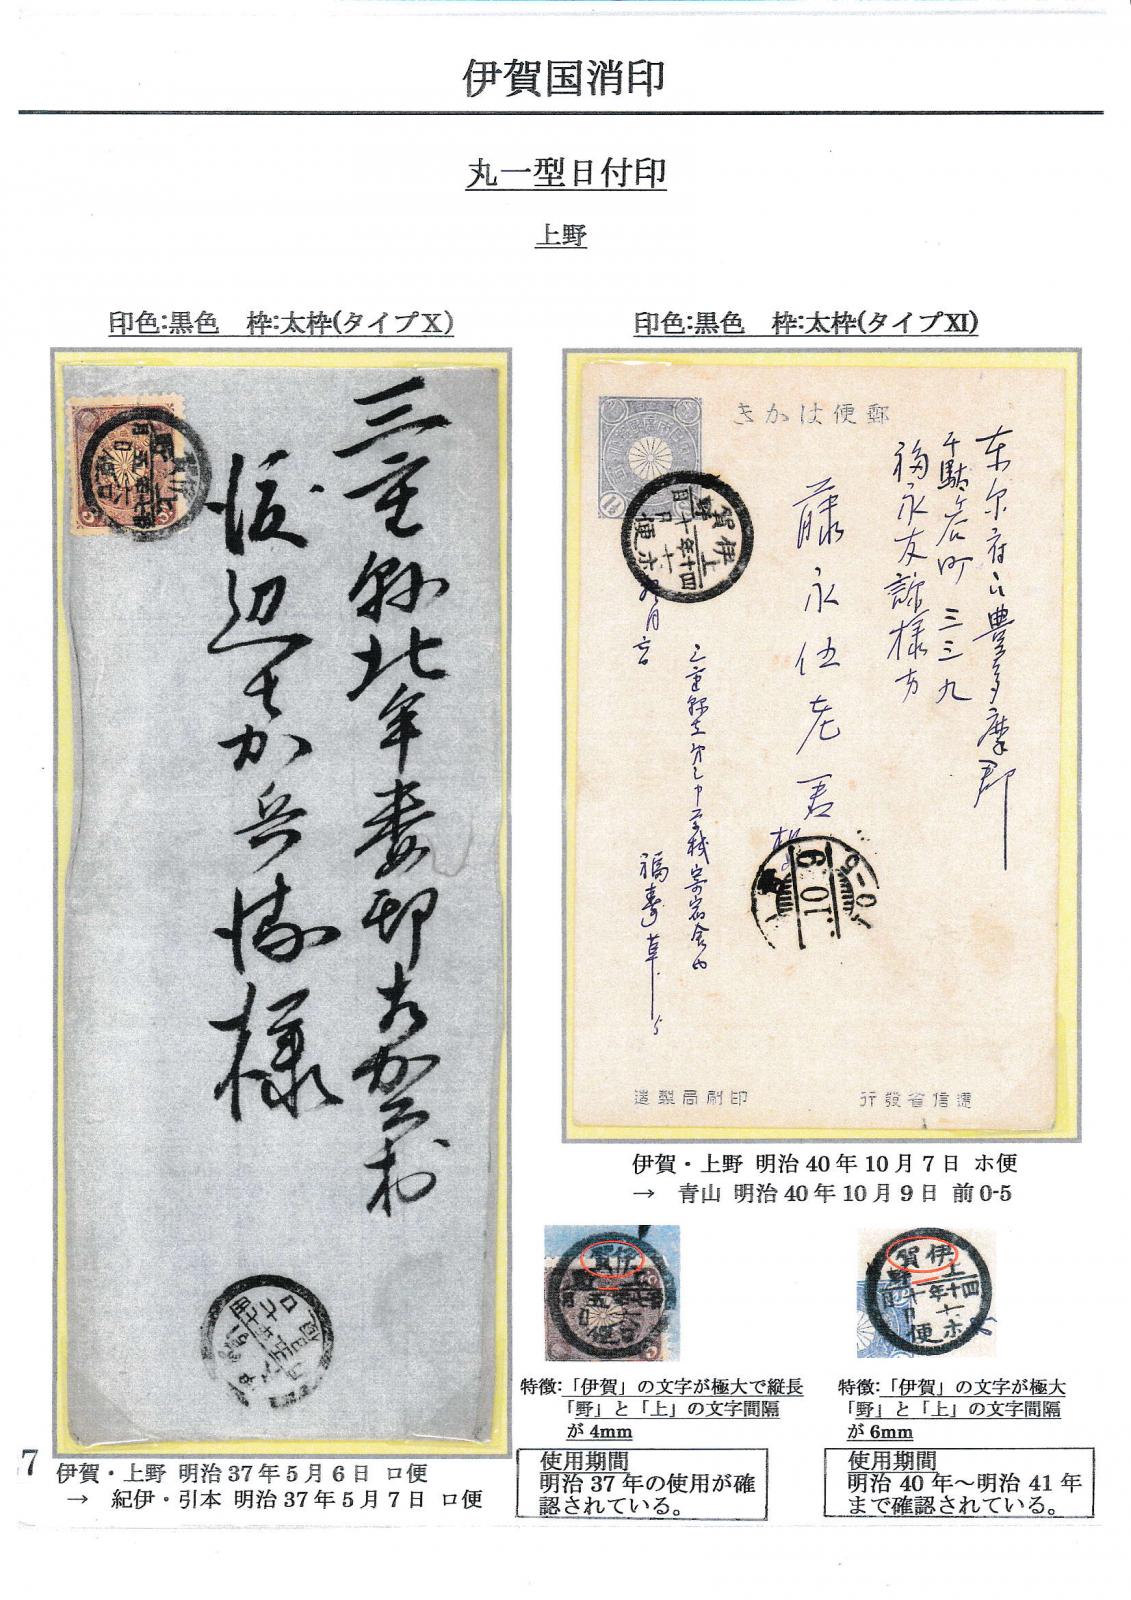 伊賀国消印
丸一型日付印
上野
印色:黒色　枠:太枠(タイプⅩ)
三重縣北牟婁郡
様
印色:黒色　枠:太枠(タイプⅪ)
郵便はかき
豊多摩郡
三三九
福永友諒様方
藤永伍老君
福壽草
印刷局製造
逓信省發行
伊賀
上野
四十年
十月
七日
ホ便
伊賀・上野 明治40年10月7日 ホ便
→ 青山 明治40年10月9日 前0-5
特徴:「伊賀」の文字が極大で縦長
「野」と「上」の文字間隔
が4mm
使用期間
明治37年の使用が確
認されている。
特徴:「伊賀」の文字が極大
「野」と「上」の文字間隔
が6mm
使用期間
明治40年～明治41年
まで確認されている。
7
伊賀・上野 明治37年5月6日 ロ便
→ 紀伊・引本 明治37年5月7日 ロ便